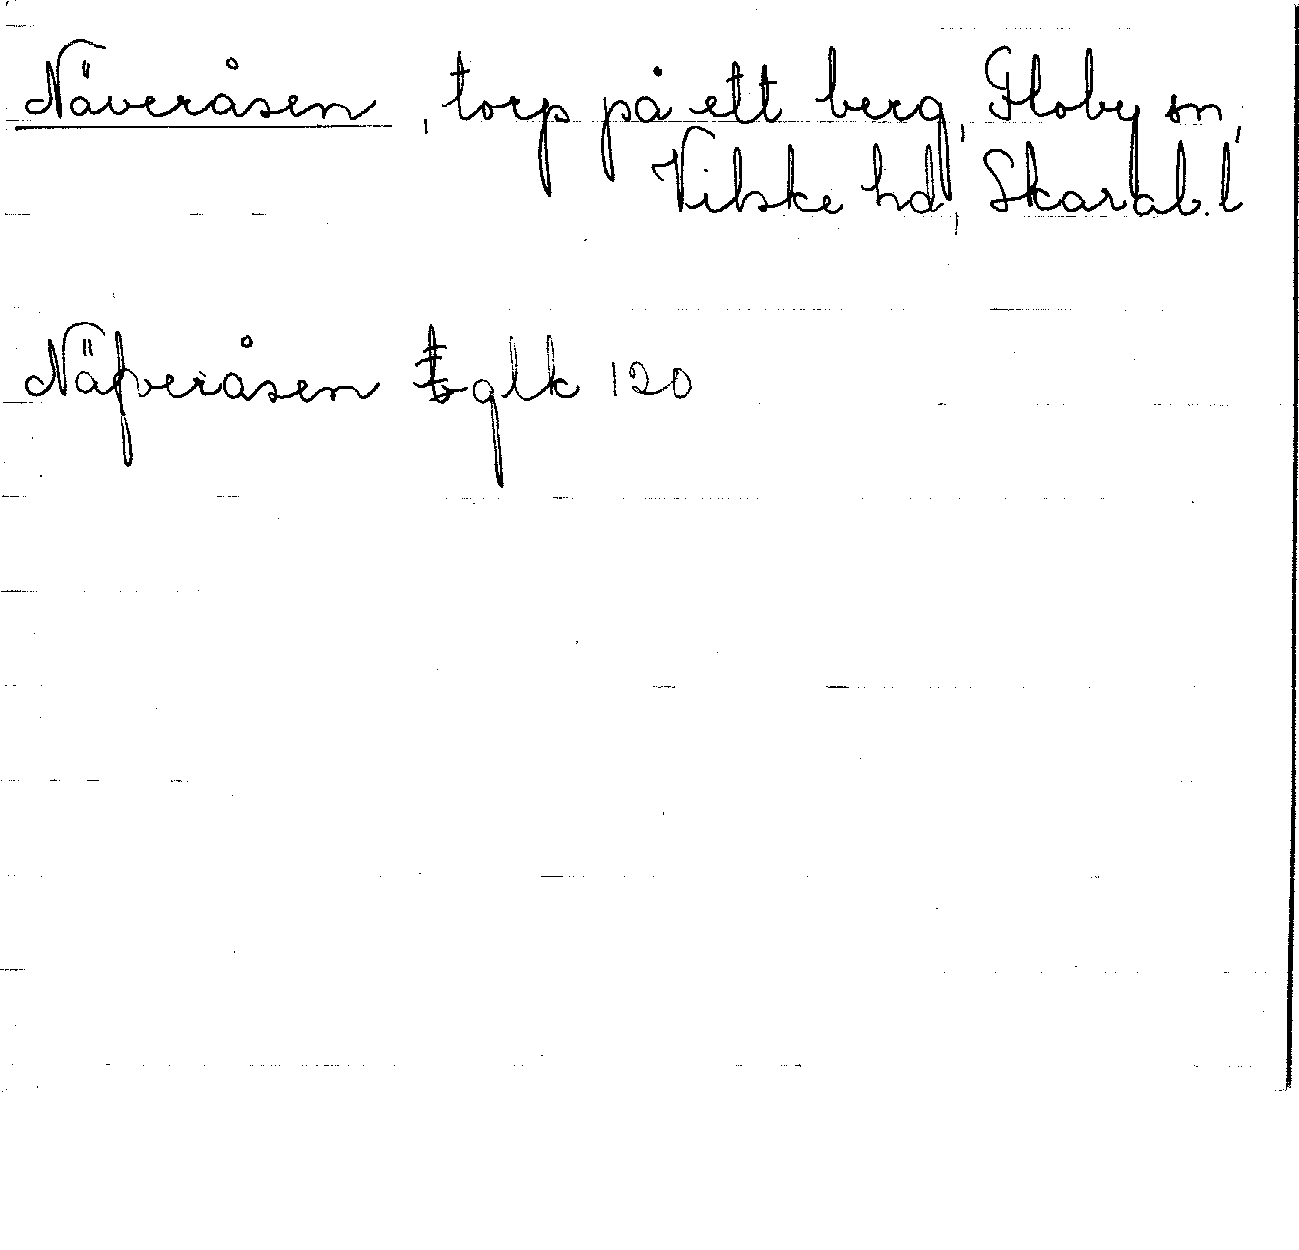 Näveråsen, torp på ett berg, Floby sn,
Vilske hd, Skarab. l
Näfveråsen glk 120